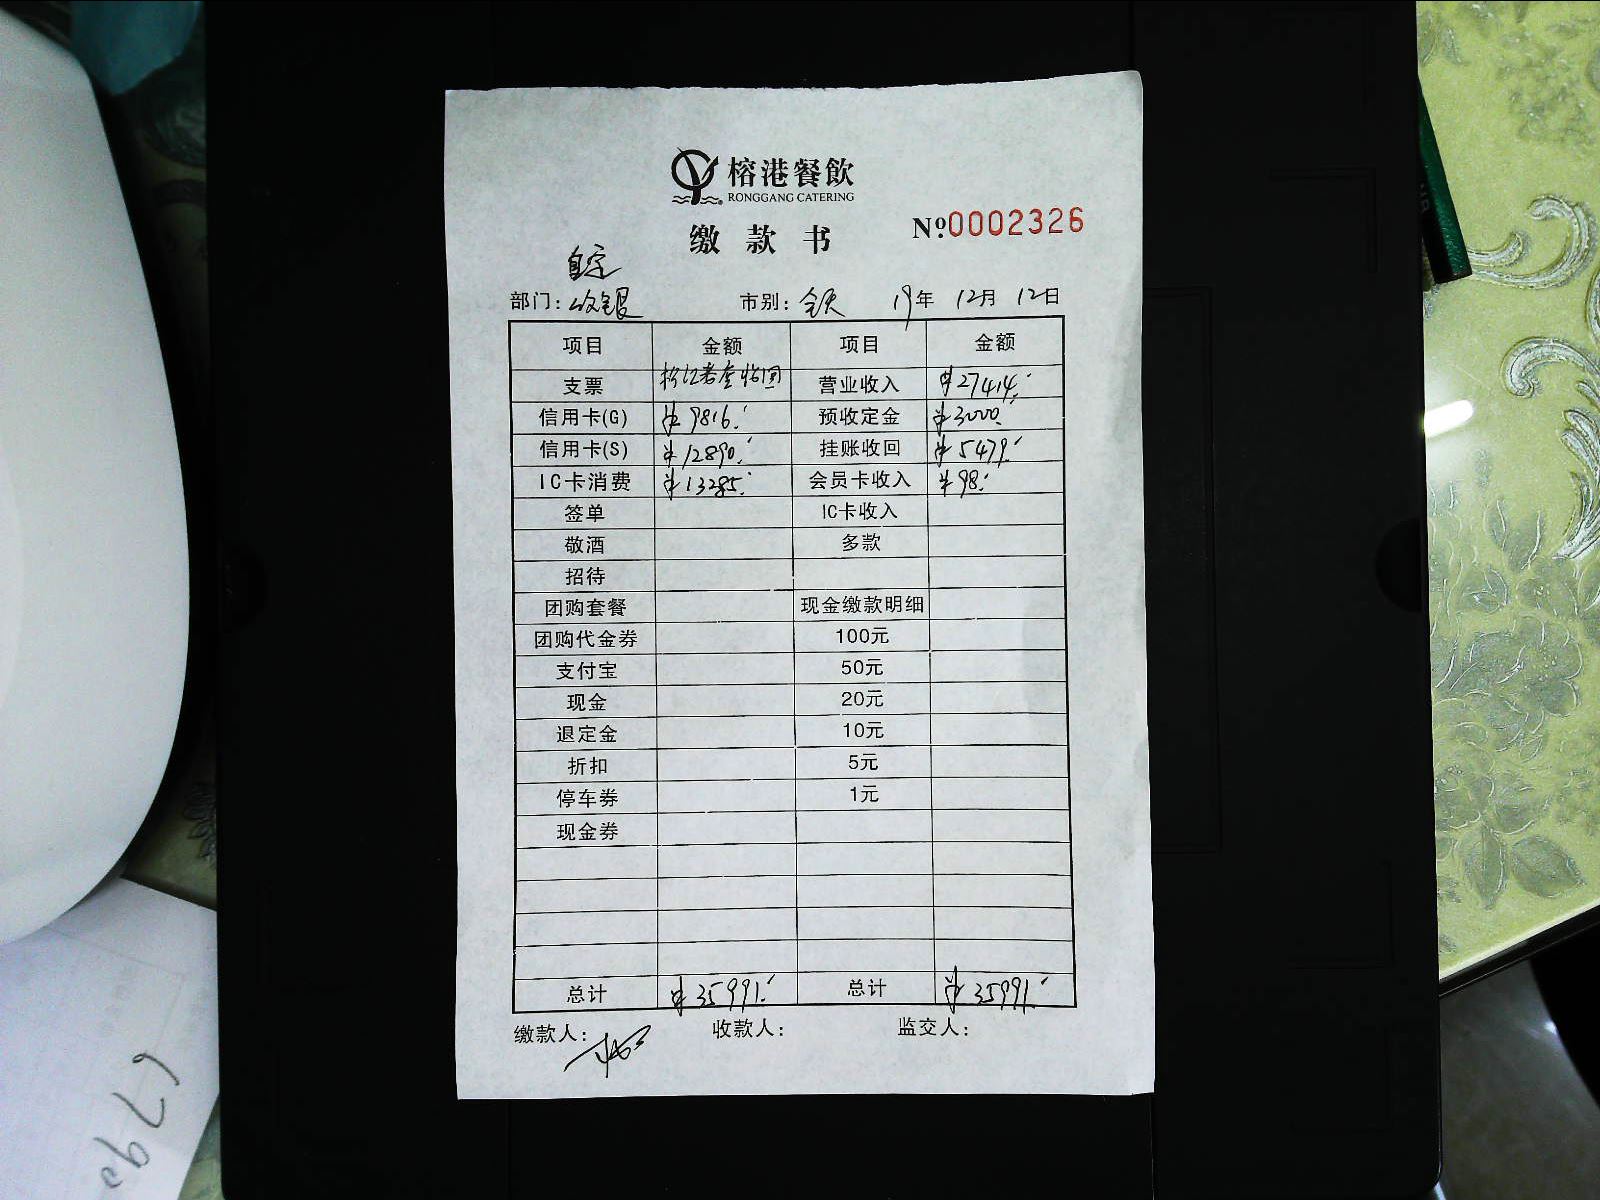 榕港餐飲
RONGGANG CATERING
缴款书 Nº.0002326
部门:收银 市别:全天 19年 12月 12日
项目 金额 项目 金额
支票 营业收入 ¥27414.-
信用卡(G) ¥9816.- 预收定金 ¥3000.
信用卡(S) ¥12890.- 挂账收回 ¥5479.-
IC卡消费 ¥13285.- 会员卡收入 ¥98.-
签单 IC卡收入
敬酒 多款
招待
团购套餐 现金缴款明细
团购代金券 100元
支付宝 50元
现金 20元
退定金 10元
折扣 5元
停车券 1元
现金券
总计 ¥35991.- 总计 ¥35991.-
缴款人: 收款人: 监交人:
6790